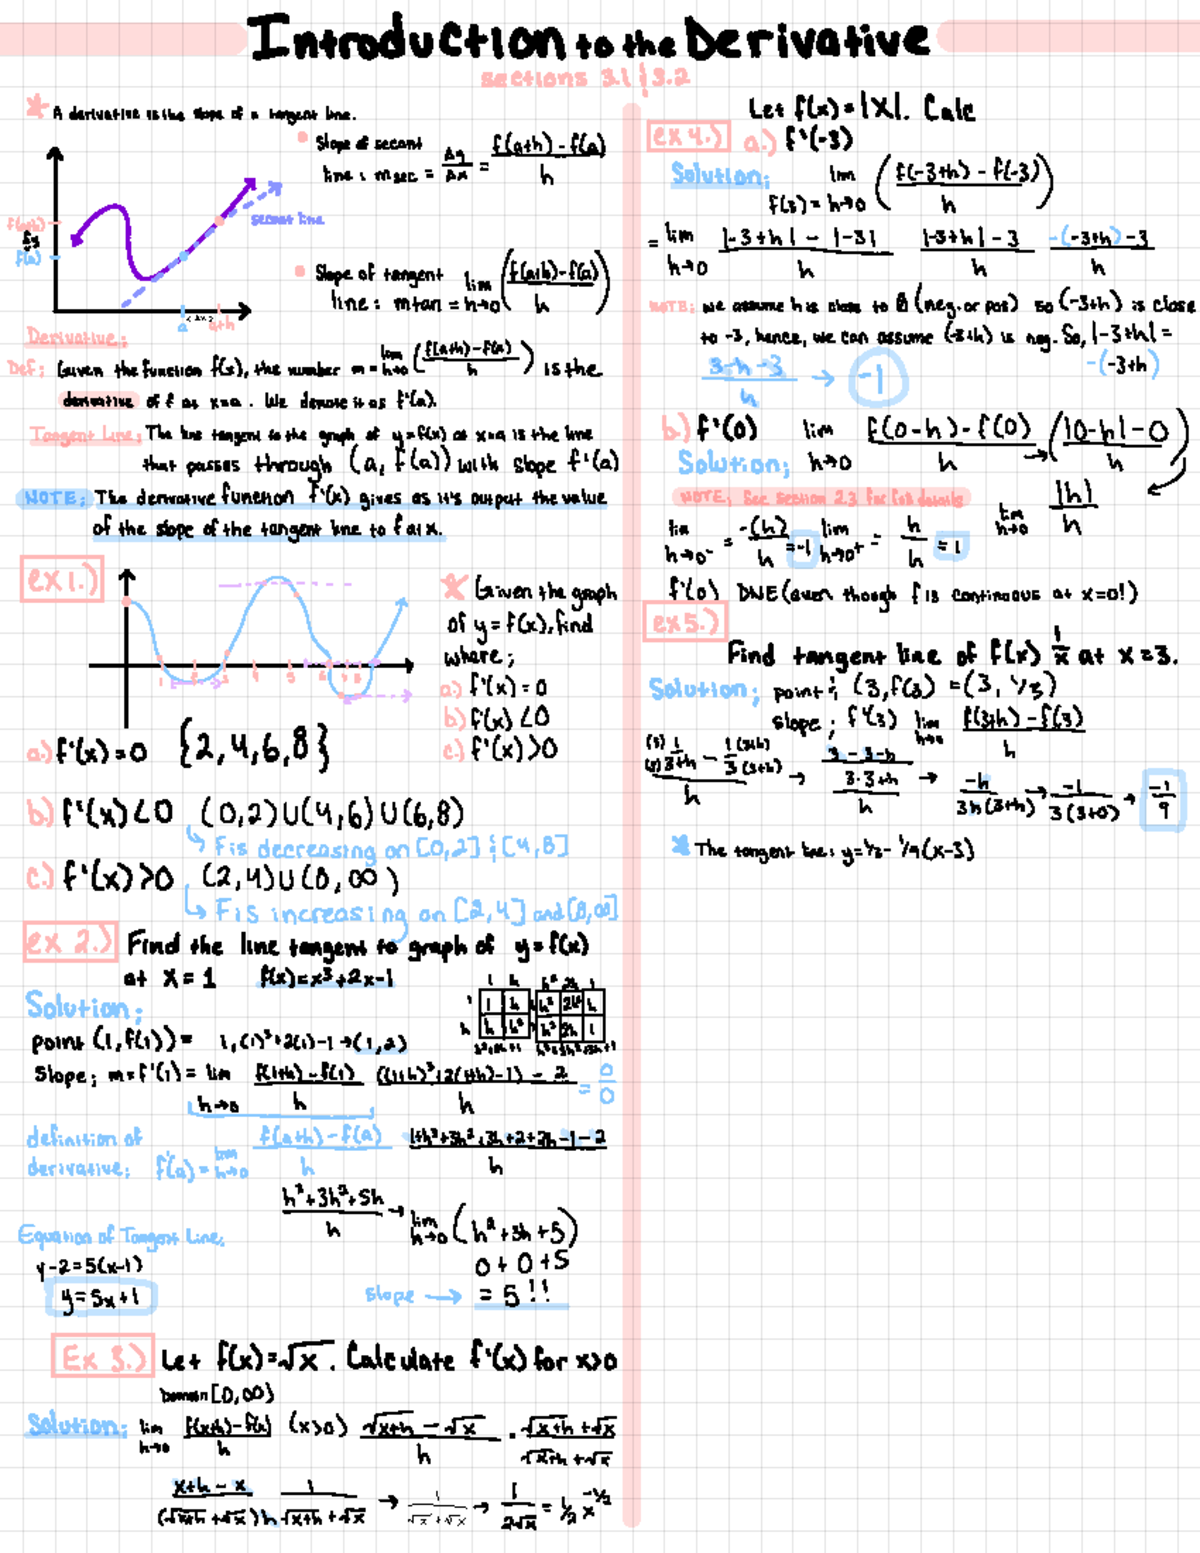 Introduction to the Derivative
sections 3.1 & 3.2
* A derivative is the slope of a tangent line.
• Slope of secant
line: msec = Δy/Δx = (f(a+h) - f(a))/h
f(a+h)
Δy
f(a)
secant line
a
a+h
• Slope of tangent
line: mtan = lim h→0 ((f(a+h) - f(a))/h)
Derivative;
Def: Given the function f(x), the number m = lim h→0 ((f(a+h) - f(a))/h) is the
derivative of f at x=a. We denote it as f'(a).
Tangent Line; The line tangent to the graph of y=f(x) at x=a is the line
that passes through (a, f(a)) with slope f'(a)
NOTE; The derivative function f'(x) gives as it's output the value
of the slope of the tangent line to f at x.
ex 1.)
* Given the graph
of y = f(x), find
where;
a.) f'(x) = 0
b.) f'(x) < 0
c.) f'(x) > 0
a.) f'(x) = 0 {2,4,6,8}
b.) f'(x) < 0 (0,2)∪(4,6)∪(6,8)
↳ F is decreasing on [0,2] & [4,8]
c.) f'(x) > 0 (2,4)∪(8,∞)
↳ F is increasing on [2,4] and [8,∞]
ex 2.) Find the line tangent to graph of y=f(x)
at x = 1 f(x) = x³+2x-1
Solution;
point (1, f(1)) = 1, (1)³+2(1)-1 → (1,2)
Slope; m = f'(1) = lim h→0 (f(1+h) - f(1))/h ((1+h)³+2(1+h)-1) - 2 / h = 0/0
definition of
derivative; f'(a) = lim h→0 (f(a+h) - f(a))/h
(1+h³+3h²+3h+2+2h-1-2)/h
(h³+3h²+5h)/h → lim h→0 (h²+3h+5)
0+0+5
slope → = 5!!
Equation of Tangent Line;
y-2=5(x-1)
y=5x+1
Ex 3.) Let f(x)=√x. Calculate f'(x) for x>0
Domain [0,∞)
Solution; lim h→0 (f(x+h)-f(x))/h (x>0) (√x+h - √x)/h · (√x+h + √x)/(√x+h + √x)
(x+h-x)/((√x+h + √x)h) 1/(√x+h + √x) → 1/(√x + √x) → 1/(2√x) = ½x^-½
Let f(x)=|x|. Calc
ex 4.) a.) f'(-3)
Solution; f(3) = lim h→0 ((f(-3+h) - f(-3))/h)
= lim h→0 (|-3+h| - |-3|)/h (|-3+h| - 3)/h (-(-3+h) - 3)/h
NOTE; we assume h is close to 0 (neg. or pos) so (-3+h) is close
to -3, hence, we can assume (-3+h) is neg. So, |-3+h| =
-(-3+h)
(3-h-3)/h → -1
b.) f'(0) lim h→0 (f(0-h) - f(0))/h → (|0-h| - 0)/h
Solution;
NOTE; See section 2.3 for full details
lim h→0 |h|/h
lim h→0⁻ = -(h)/h = -1 lim h→0⁺ = h/h = 1
f'(0) DNE (even though f is continuous at x=0!)
ex 5.)
Find tangent line of f(x) 1/x at x = 3.
Solution; point; (3, f(3)) = (3, 1/3)
slope; f'(3) lim h→0 (f(3+h) - f(3))/h
((3)/(3) 1/(3+h) - 1/3 (3+h)/(3+h))/h → ((3-3-h)/(3·3+h))/h → -h/(3h(3+h)) → -1/(3(3+0)) → -1/9
* The tangent line: y = 1/3 - 1/9(x-3)